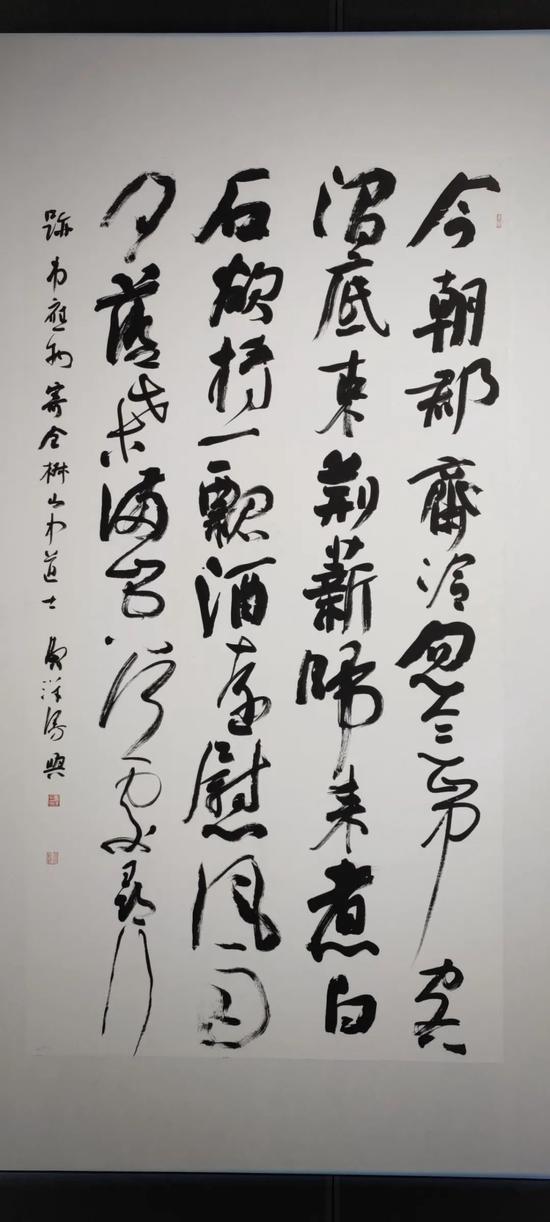 今朝郡齋冷忽念山中客
澗底束荊薪歸來煮白
石欲持一瓢酒遠慰風雨
夕落葉滿空山何處尋行
跡 韋應物寄全椒山中道士